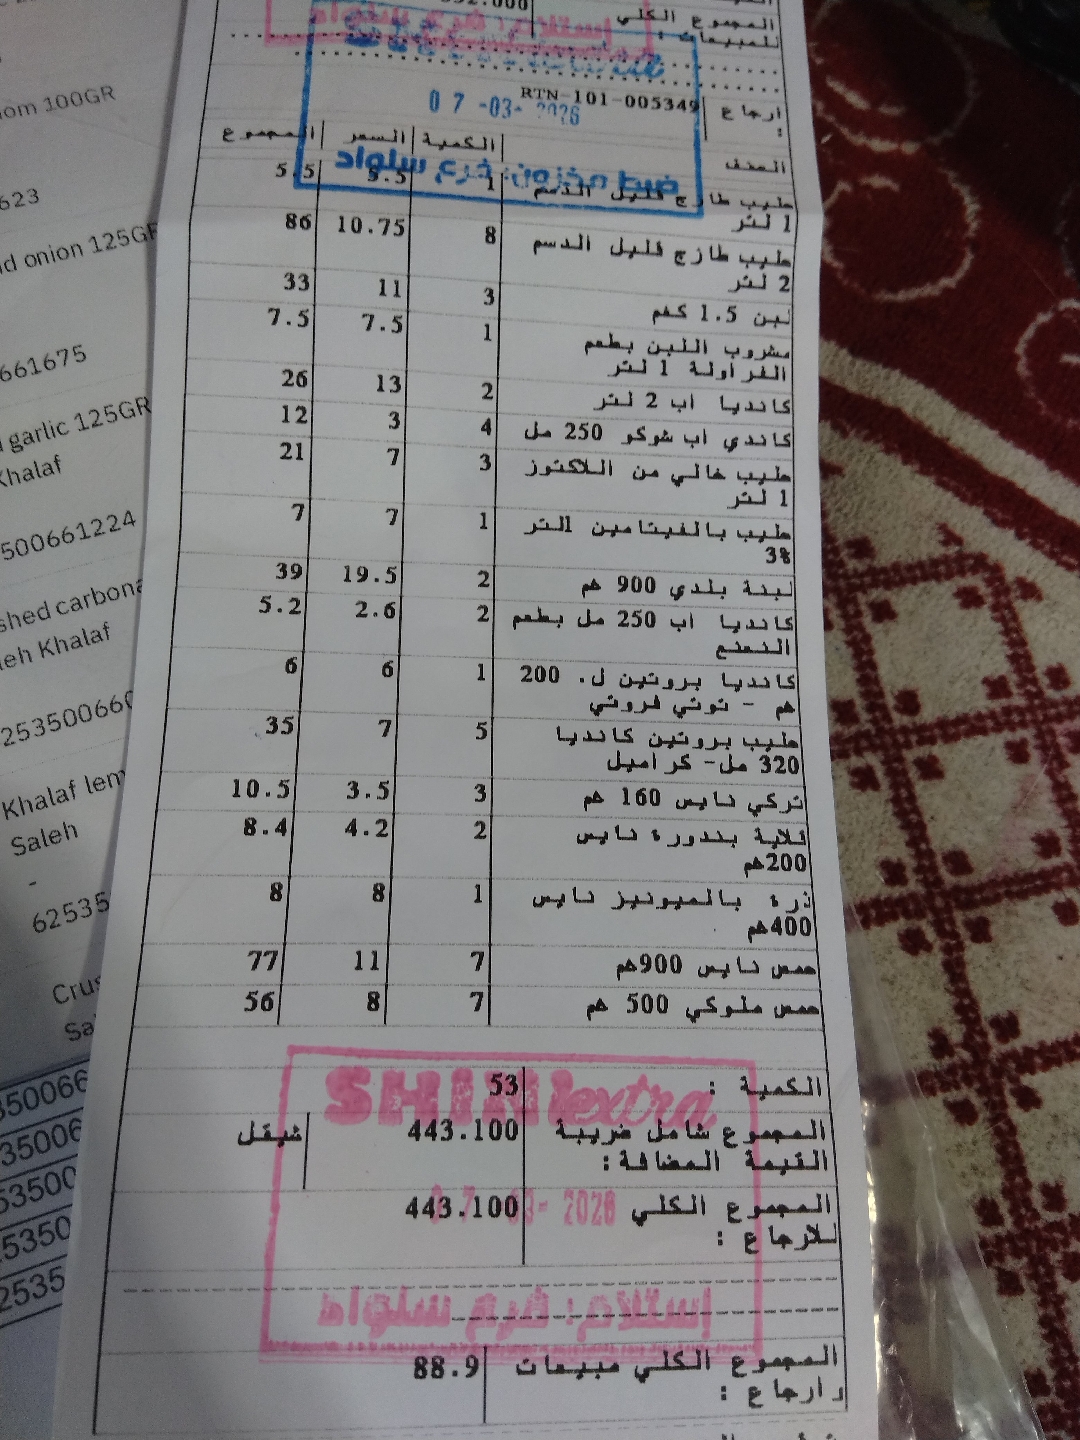 المجموع الكلي
للمبيعات :
إستلام: فرع سلواد
ارجاع : RTN-101-005349
07-03-2026
الصنف الكمية السعر المجموع
ضبط مخزون: فرع سلواد
حليب طازج قليل الدسم 1 5.5 5.5
1 لتر
حليب طازج قليل الدسم 8 10.75 86
2 لتر
لبن 1.5 كغم 3 11 33
مشروب اللبن بطعم 1 7.5 7.5
الفراولة 1 لتر
كانديا اب 2 لتر 2 13 26
كاندي اب شوكو 250 مل 4 3 12
حليب خالي من اللاكتوز 3 7 21
1 لتر
حليب بالفيتامين 1لتر 1 7 7
3%
لبنة بلدي 900 غم 2 19.5 39
كانديا اب 250 مل بطعم 2 2.6 5.2
النعنع
كانديا بروتين ل. 200 1 6 6
غم - توتي فروتي
حليب بروتين كانديا 5 7 35
320 مل- كراميل
تركي نايس 160 غم 3 3.5 10.5
قلاية بندورة نايس 2 4.2 8.4
200غم
ذرة بالميونيز نايس 1 8 8
400غم
حمص نايس 900غم 7 11 77
حمص ملوكي 500 غم 7 8 56
الكمية : 53
SHINI extra
المجموع شامل ضريبة 443.100 شيقل
القيمة المضافة:
المجموع الكلي 443.100
للارجاع :
07-03-2026
إستلام: فرع سلواد
المجموع الكلي مبيعات 88.9
و ارجاع :
100GR
623
onion 125GR
661675
garlic 125GR
Khalaf
500661224
Khalaf
Khalaf
Saleh
-
62535